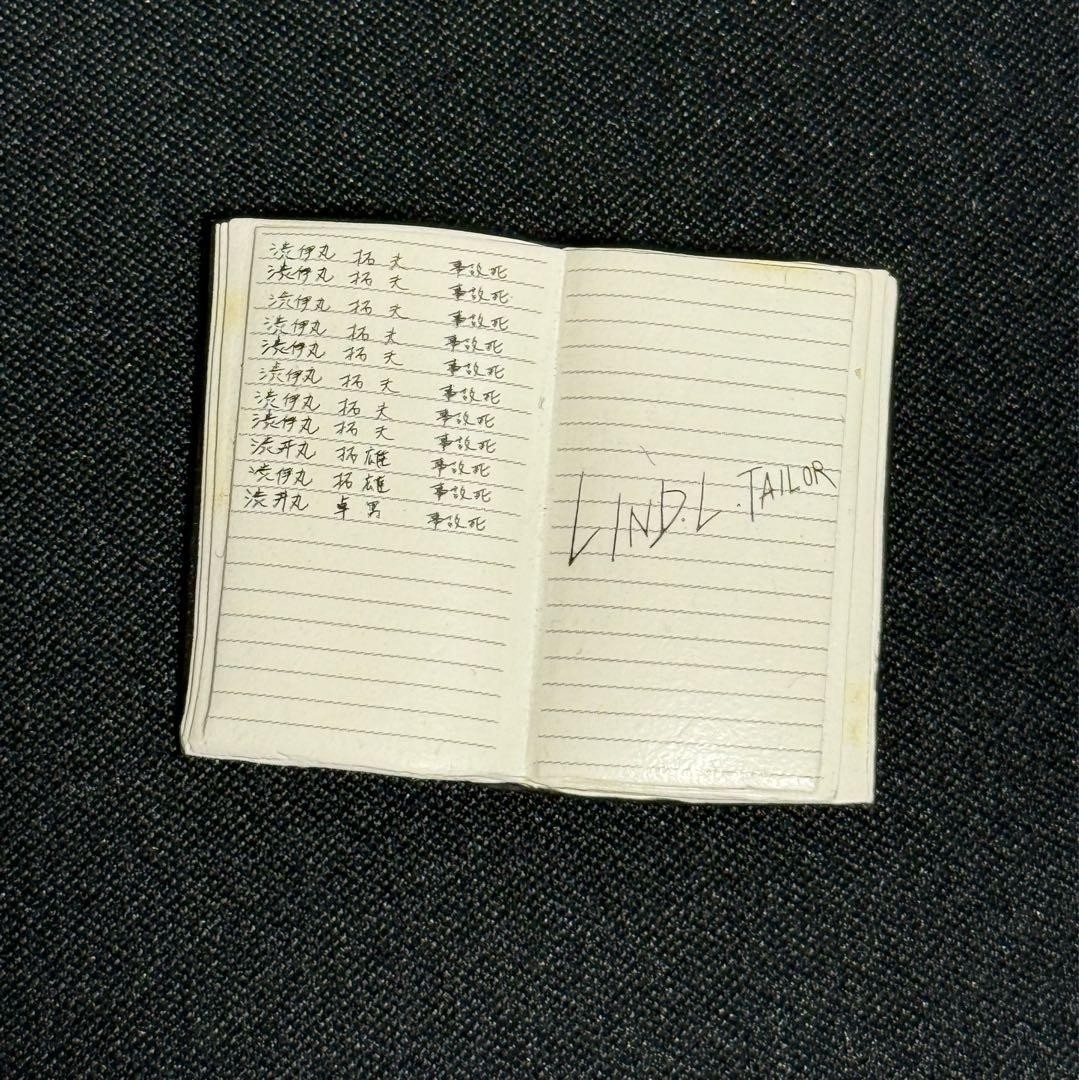 渋伊丸 拓夫 事故死
渋伊丸 拓夫 事故死
渋伊丸 拓夫 事故死
渋伊丸 拓夫 事故死
渋伊丸 拓夫 事故死
渋伊丸 拓夫 事故死
渋伊丸 拓夫 事故死
渋伊丸 拓夫 事故死
渋井丸 拓雄 事故死
渋伊丸 拓雄 事故死
渋井丸 卓男 事故死
LIND.L.TAILOR